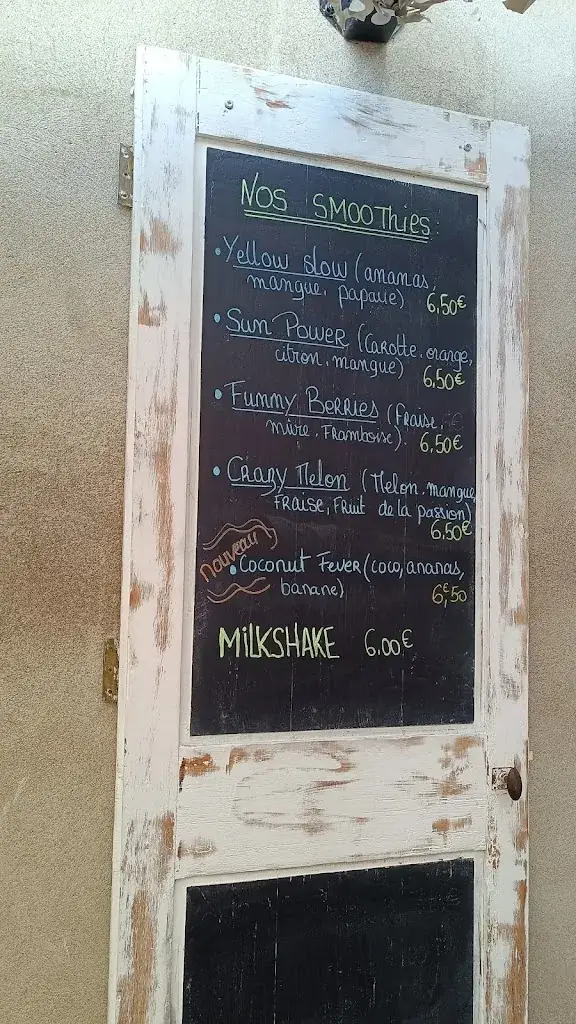 NOS SMOOTHiES:
• Yellow slow (ananas,
mangue, papaye) 6,50€
• Sun Power (Carotte, orange,
citron, mangue) 6,50€
• Funny Berries (Fraise,
mûre, Framboise) 6,50€
• Crazy Melon (Melon, mangue,
Fraise, Fruit de la passion)
6,50€
nouveau
• Coconut Fever (coco, ananas,
banane) 6€,50
MiLKSHAKE 6.00€